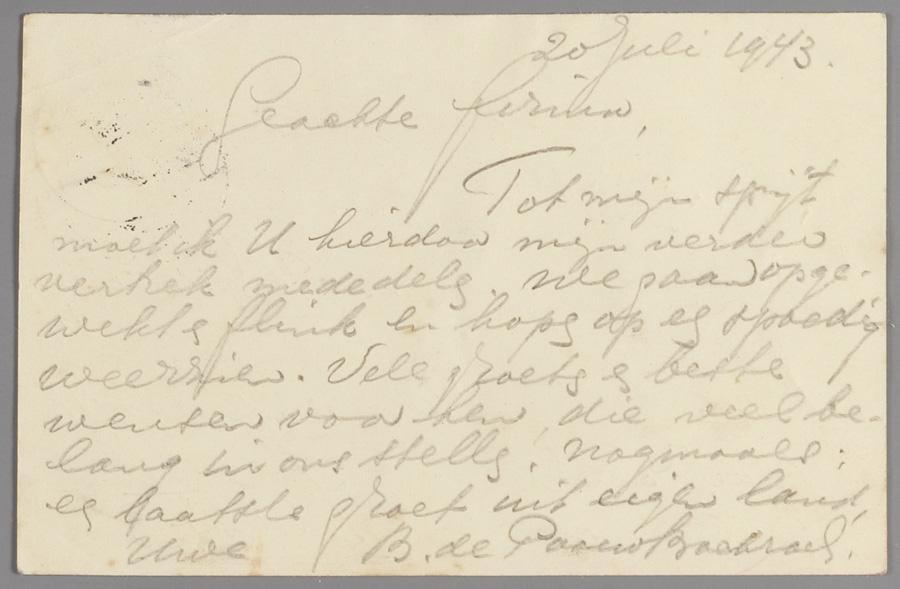 20 Juli 1943.
Geachte firma,
Tot mijn spijt
moet ik U hierdoor mijn verder
vertrek mededelen. We gaan opge-
wekt en flink en hopen op een spoedig
weerzien. Vele groeten en beste
wensen voor hen, die veel be-
lang in ons stellen. Nogmaals:
een laatste groet uit eigen land,
Uwe B. de Paauw